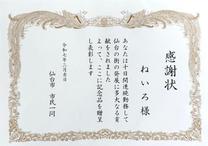 感謝状
ねいろ様
あなたは十日間連続勤務して
仙台の街の発展に多大なる貢
献をされました
よって、ここに記念品を贈呈
し表彰します
令和七年二月吉日
仙台市 市民一同